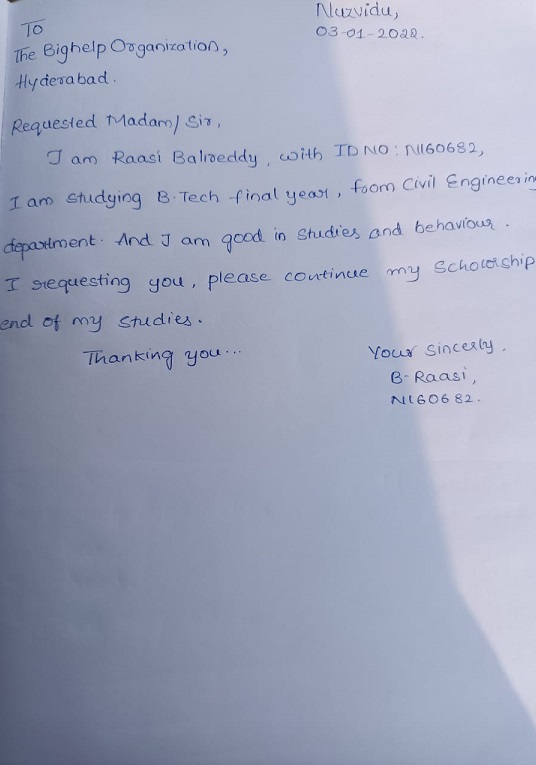 Nuzvidu,
03-01-2022.
To
The Bighelp Organization,
Hyderabad.
Requested Madam/ Sir,
I am Raasi Balireddy, with ID NO: N160682,
I am studying B.Tech final year, from Civil Engineering
department. And I am good in studies and behaviour.
I requesting you, please continue my Scholorship
end of my studies.
Thanking you...
Your sincerly.
B-Raasi,
N160682.